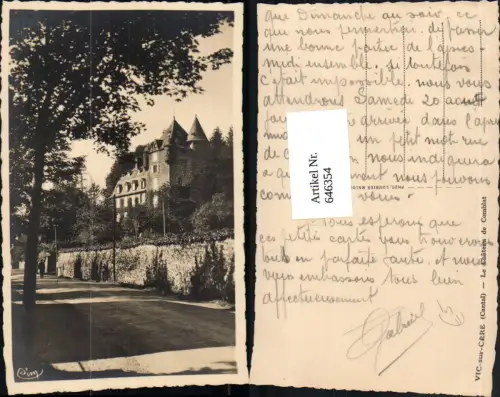 Cim
que Dimanche au soir, ce
qui nous permettrait d'y passer
une bonne partie de l'après-
midi ensemble, si toutefois
c'était impossible. nous vous
attendrons Samedi 20 août
arriver dans l'après
un petit mot
nous indiquerai
nous pouvons
vous.
Nous espérons que
ces petites cartes vous trouverons
tous en parfaite santé. et nous
vous embrassons tous bien
affectueusement
Gabriel
Artikel Nr.
646354
VIC-sur-CÈRE (Cantal) — Le Château de Comblat